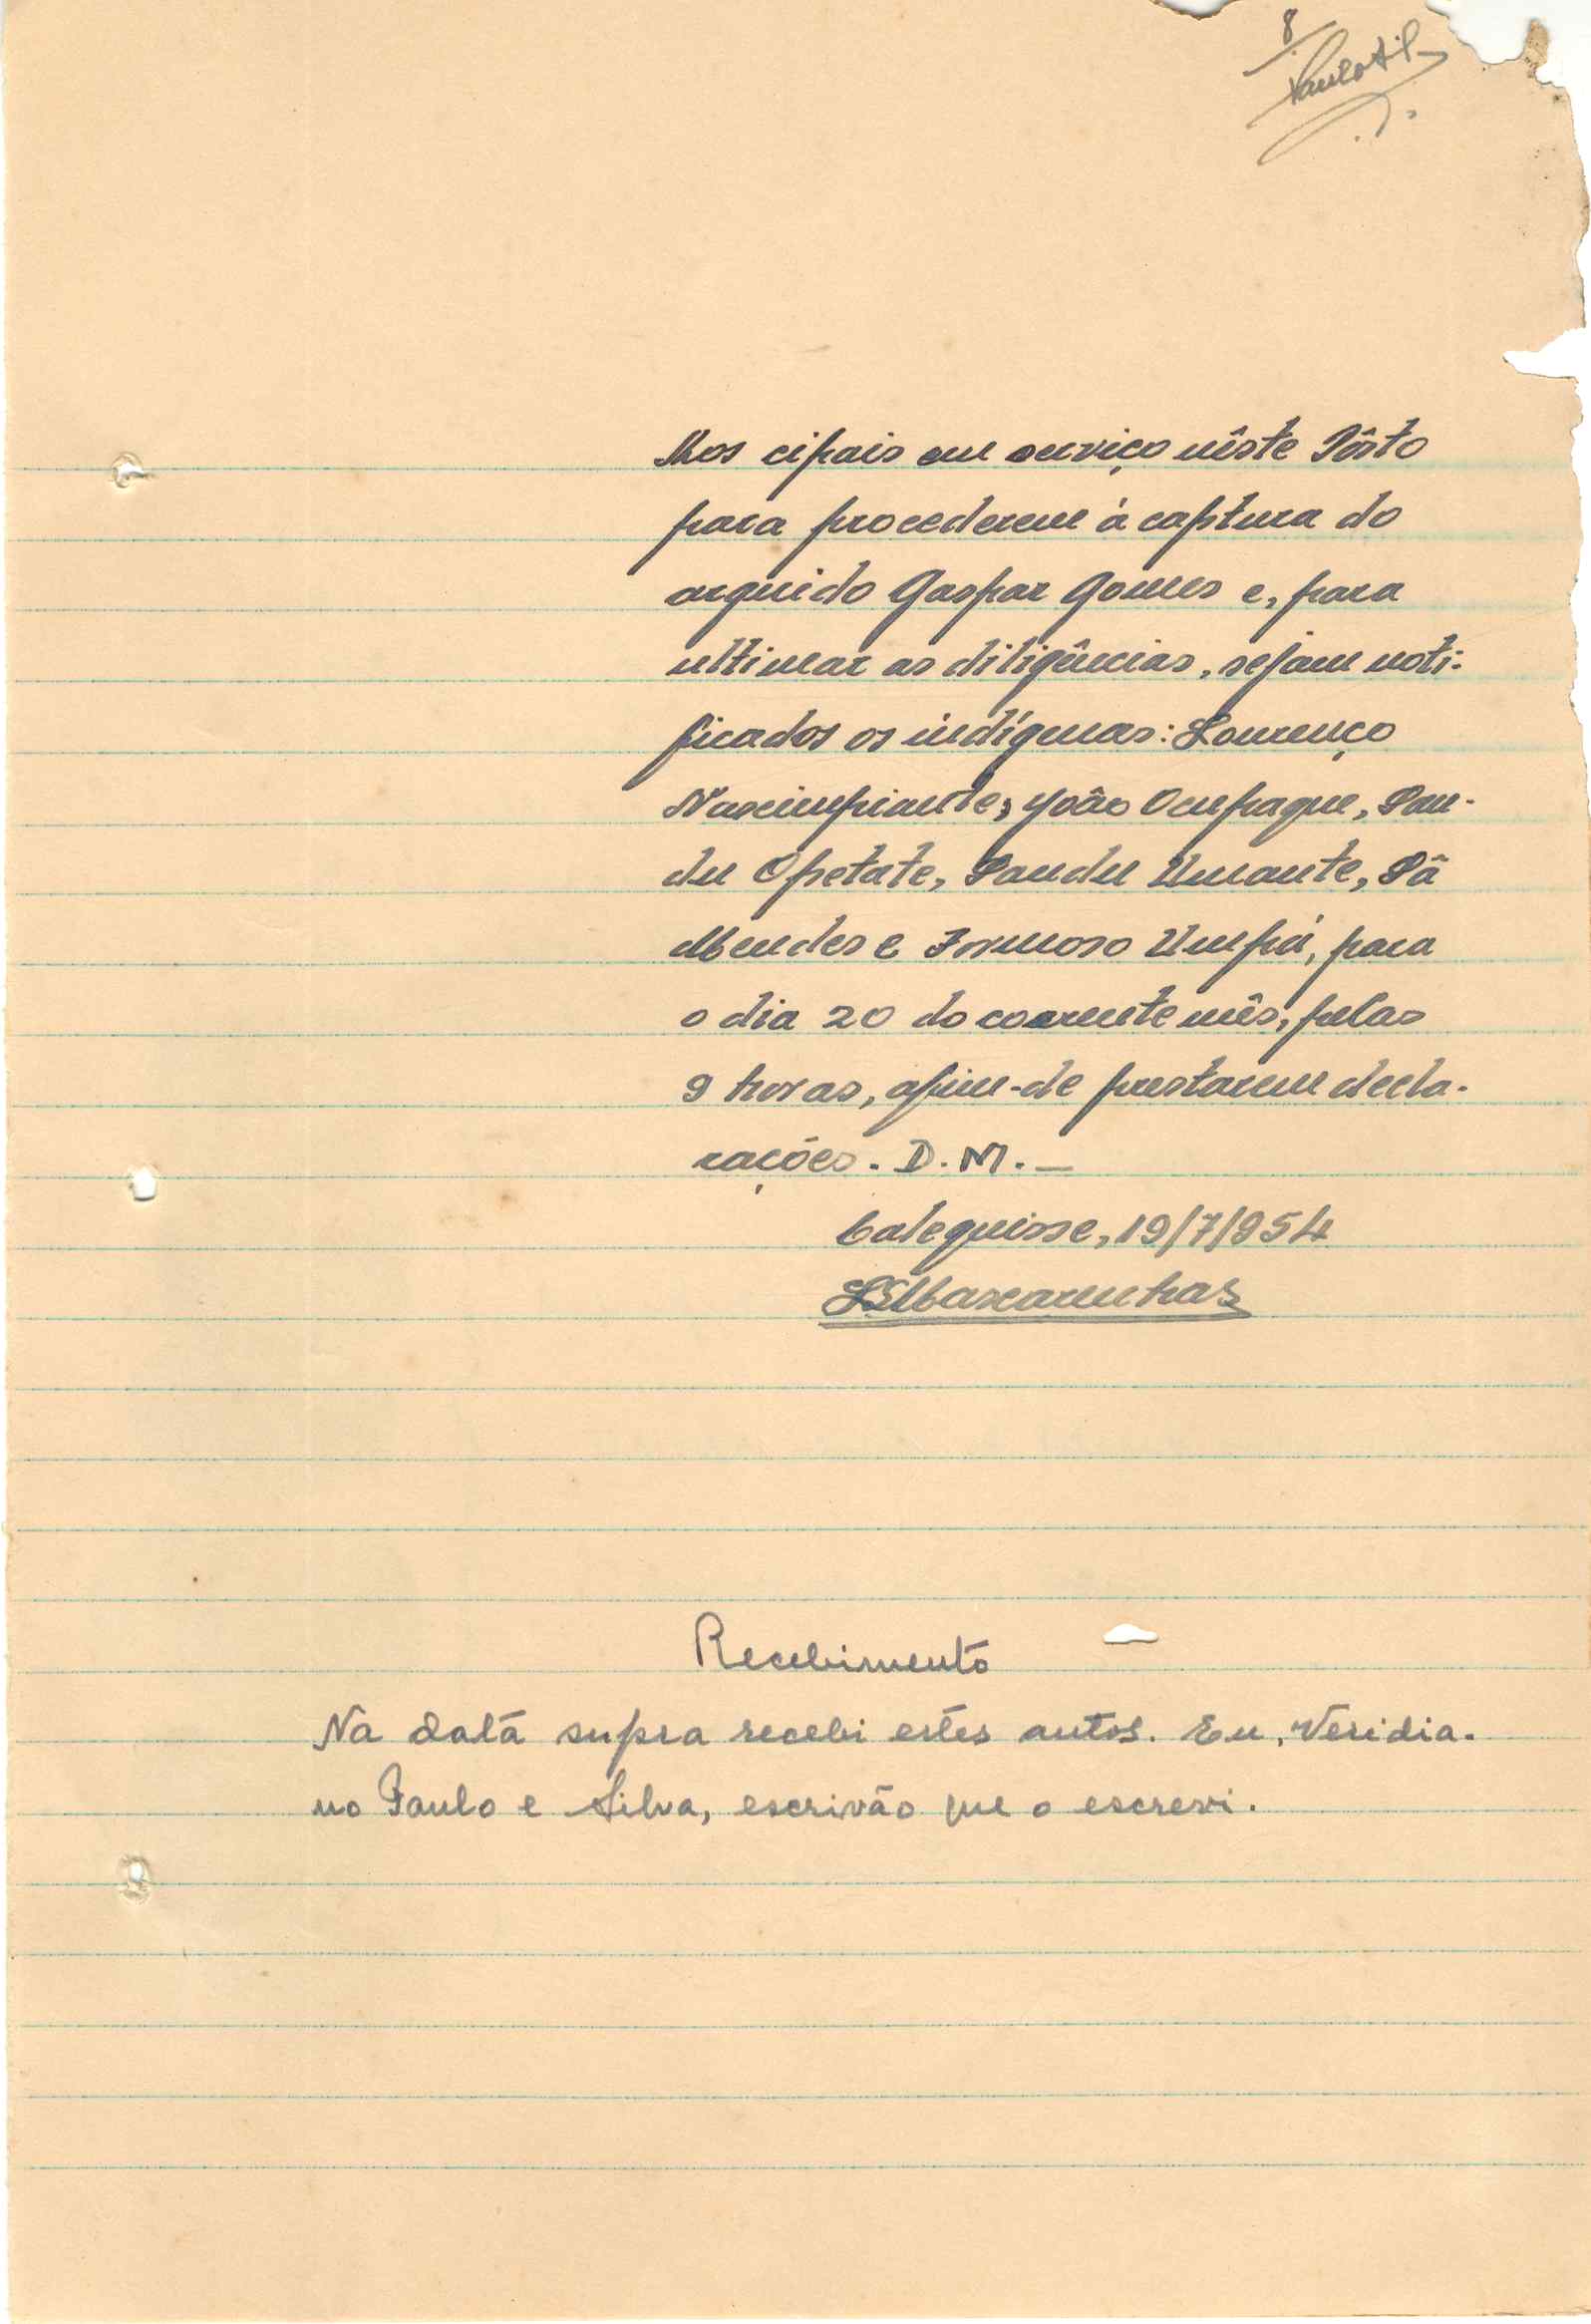 8
Paulo Sil
Aos cipais em serviço nêste Pôsto
para procederem à captura do
arguido Gaspar Gomes e, para
ultimar as diligências, sejam noti-
ficados os indígenas: Lourenço
Nascimpiante, João Ocupaque, Sam-
du Opetate, Sandu Umante, Sã
Mendes e Formoso Umpá, para
o dia 20 do corrente mês, pelas
9 horas, afim-de prestarem decla-
rações. D. M. —
Calequisse, 19/7/954
LSMascarenhas
Recebimento
Na data supra recebi estes autos. Eu, Veridia-
no Paulo e Silva, escrivão que o escrevi.